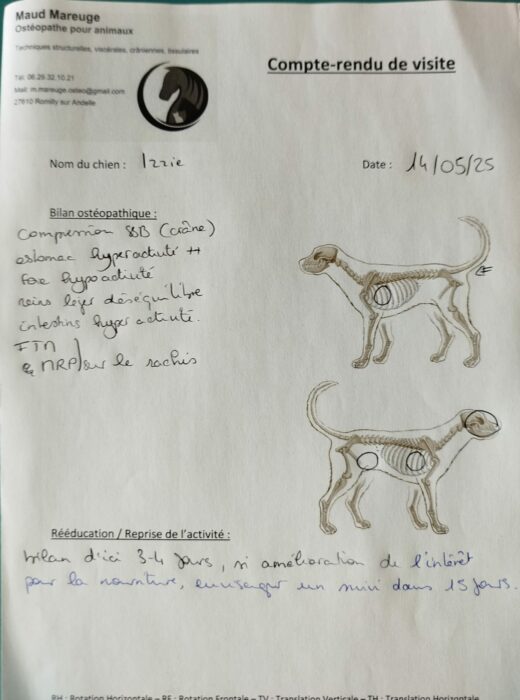 Maud Mareuge
Ostéopathe pour animaux
Techniques structurelles, viscérales, crâniennes, tissulaires
Tél: 06.29.32.10.21
Mail: m.mareuge.osteo@gmail.com
27610 Romilly sur Andelle
Compte-rendu de visite
Nom du chien : Izzie
Date : 14/05/25
Bilan ostéopathique :
Compression SSB (crâne)
estomac hyperactivité ++
foie hypoactivité
reins léger déséquilibre
intestins hyper activité.
FTM
& NRP) sur le rachis
Rééducation / Reprise de l'activité :
bilan d'ici 3-4 jours, si amélioration de l'intérêt
pour la nourriture, envisager un suivi dans 15 jours.
RH : Rotation Horizontale – RF : Rotation Frontale – TV : Translation Verticale – TH : Translation Horizontale